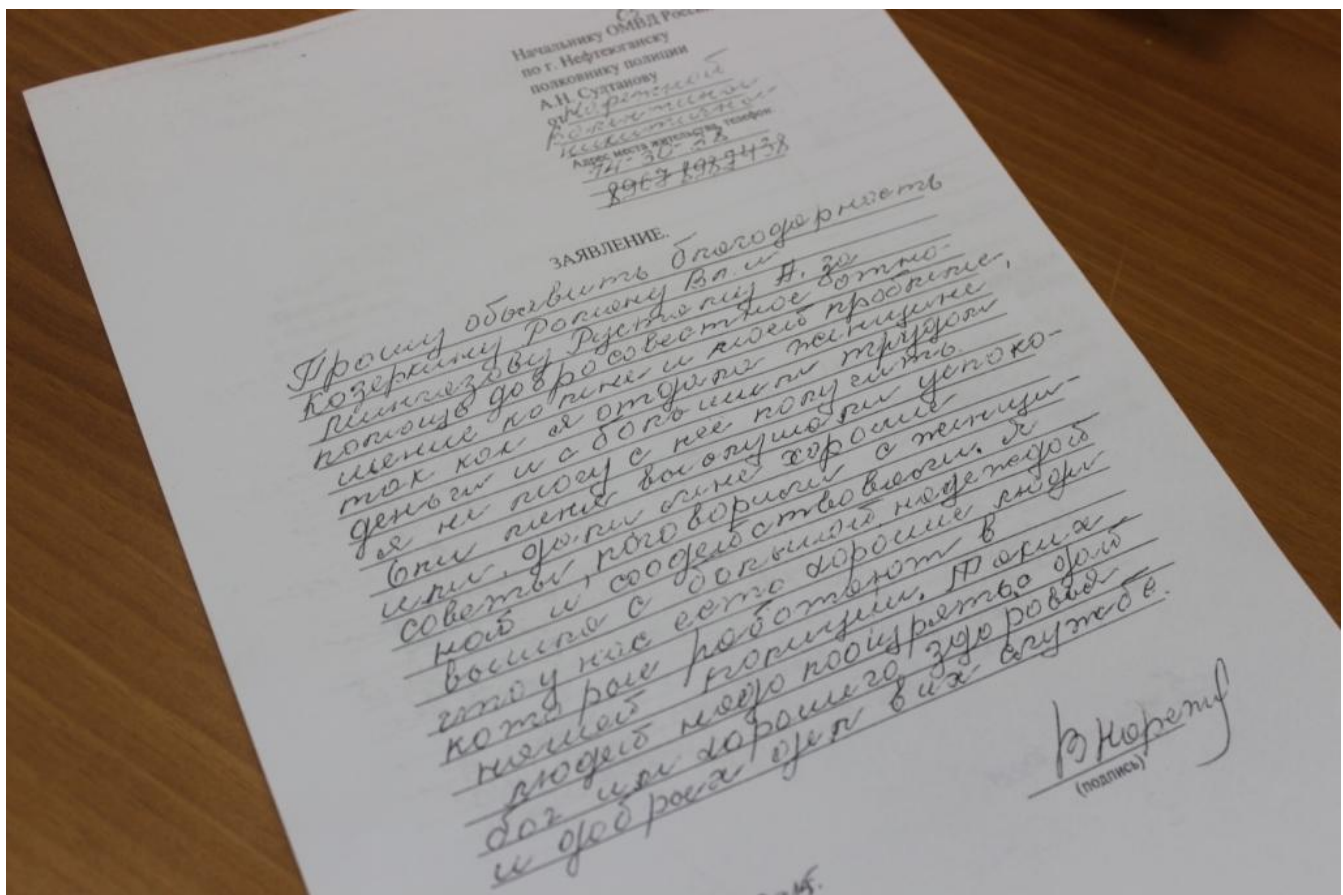 Начальнику ОМВД России
по г. Нефтеюганску
полковнику полиции
А.Н. Султанову
от Нарежной
Валентиной
Никитичной
Адрес места жительства, телефон:
14-30-28
8967 8987438
ЗАЯВЛЕНИЕ.
Прошу объявить благодарность
Козеркину Роману Вл. и
Рустаму А. за
помощь добросовестное отно-
шение ко мне и моей проблеме,
так как я отдала женщине
деньги и с большим трудом
я не могу с нее получить.
Они меня выслушали успоко-
или, дали мне хорошие
советы, поговорили с женщи-
ной и сообща
вышла с большой надеждой
что у нас есть хорошие люди
которые работают в
нашей полиции. Таких
людей надо поощрять, дай
бог им хорошего здоровья
и добрых дел в их службе.
В Нареж
(подпись)